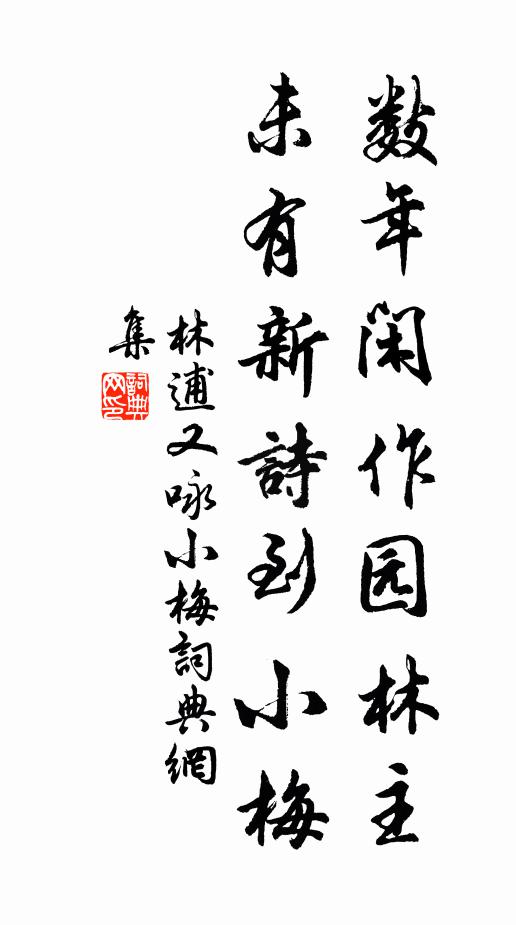 数年闲作园林主
未有新詩到小梅
林逋又咏小梅詞典網
集
詞典
网印